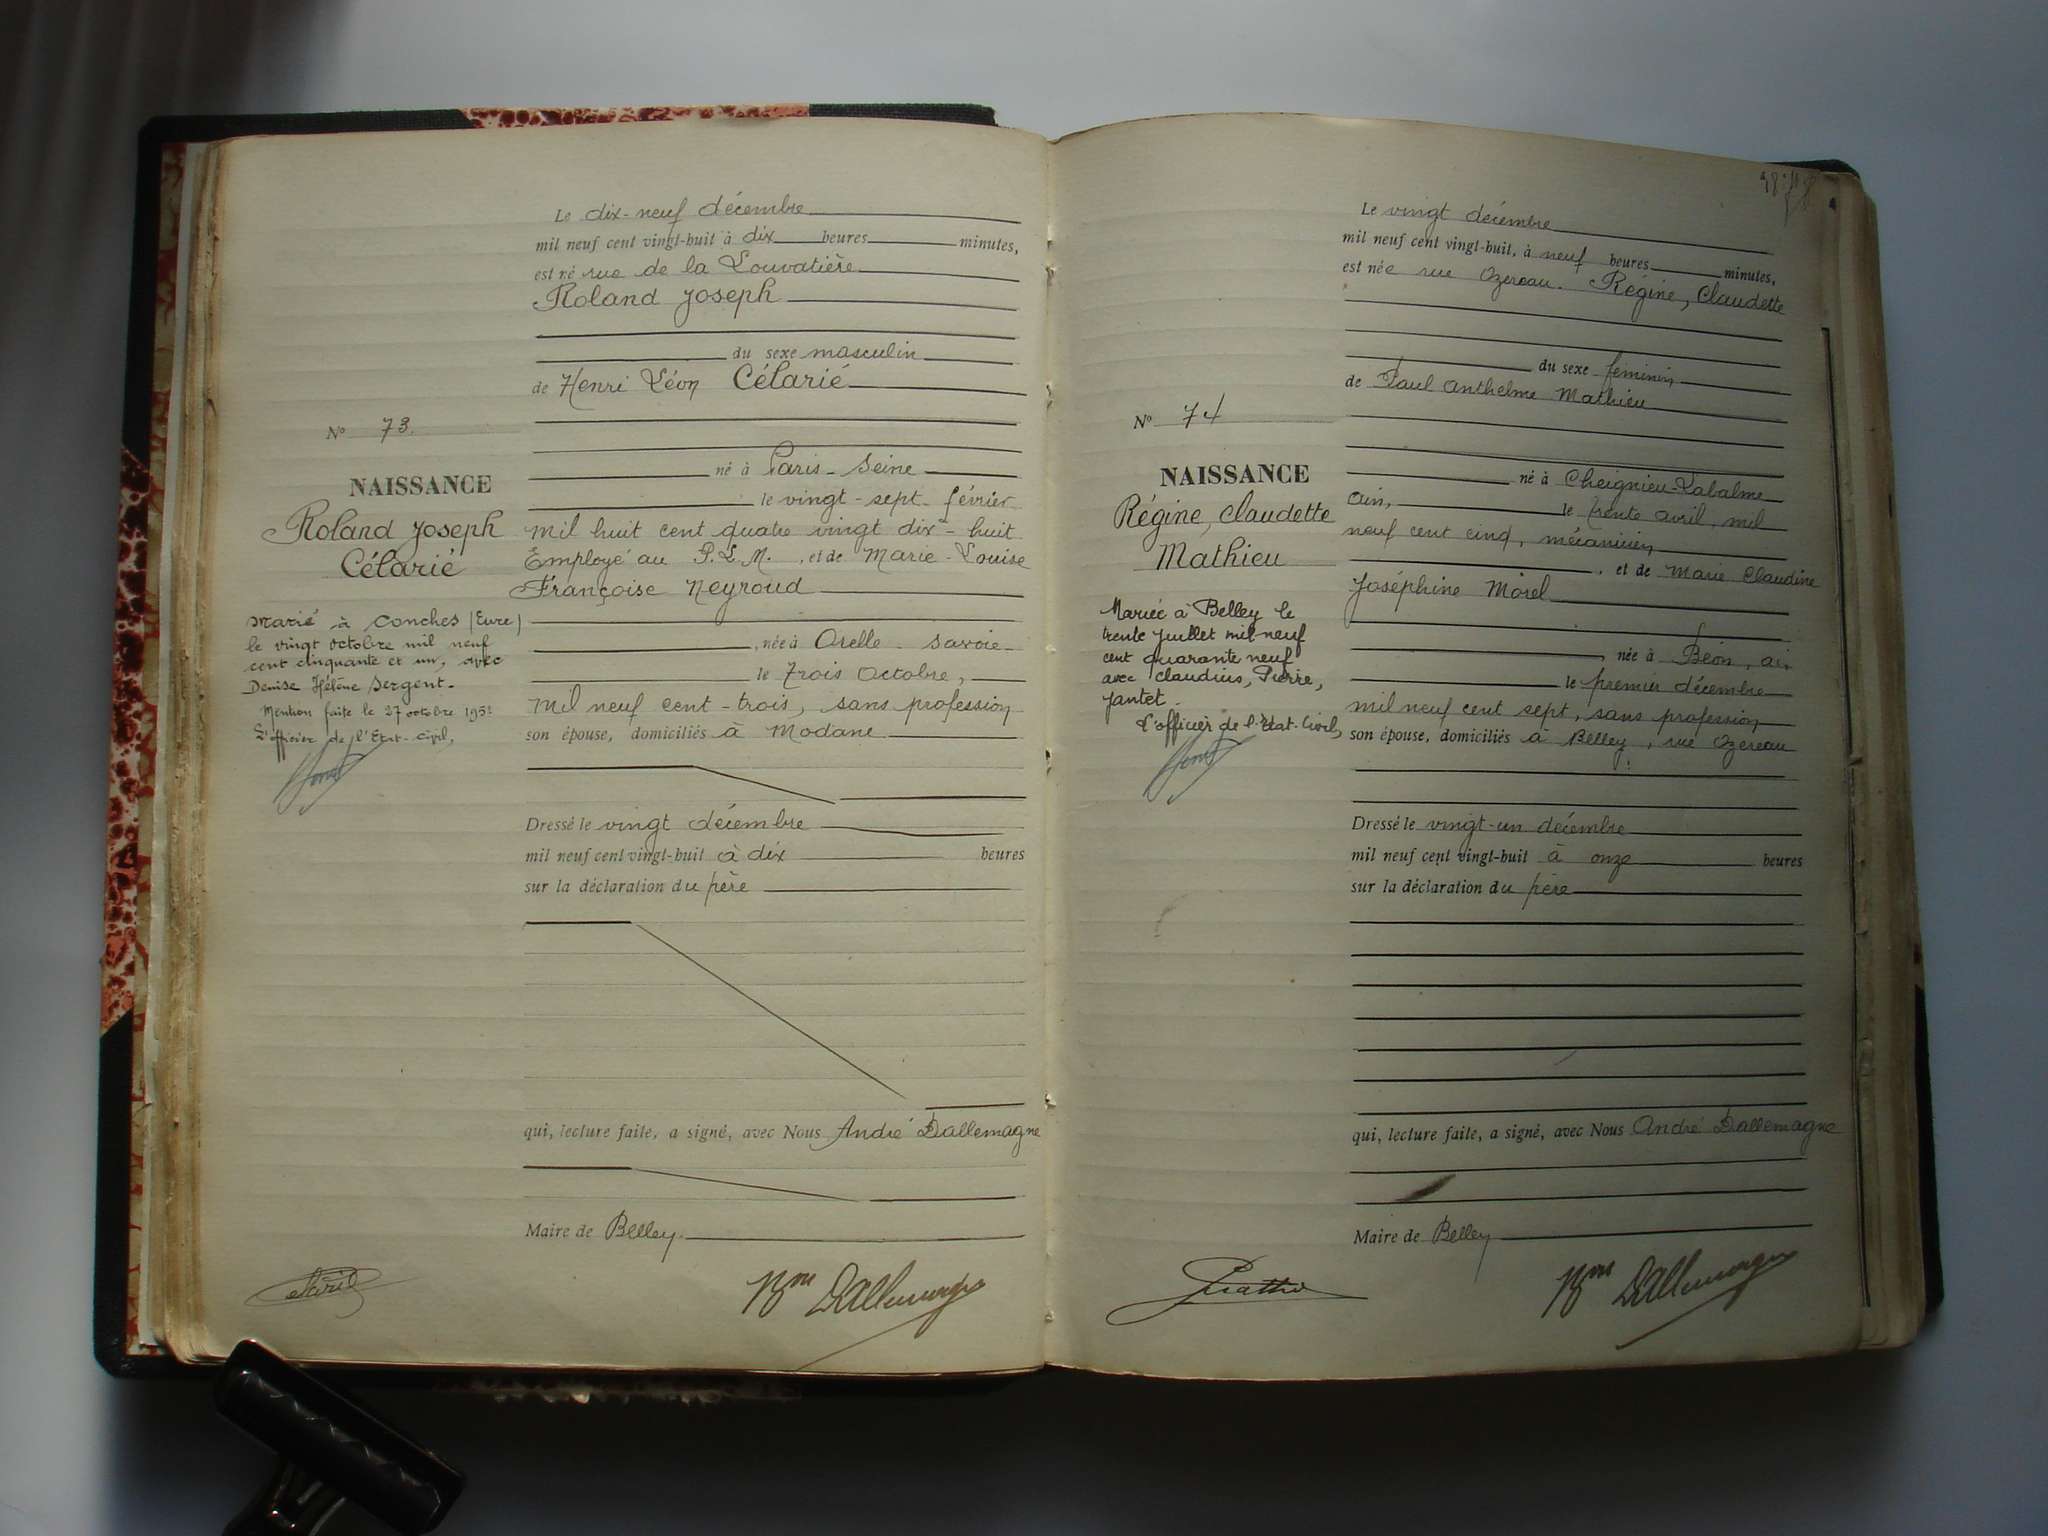 Le dix-neuf décembre
mil neuf cent vingt-huit à dix heures minutes,
est né rue de la Louvatière
Roland Joseph
du sexe masculin
de Henri Léon Célarié
né à Paris - Seine
le vingt-sept février
mil huit cent quatre vingt dix-huit
Employé au P.L.M. , et de Marie-Louise
Françoise Neyroud
, née à Orelle - Savoie -
le trois Octobre,
mil neuf cent-trois, sans profession
son épouse, domiciliés à Modane
Dressé le vingt décembre
mil neuf cent vingt-huit à dix heures
sur la déclaration du père
qui, lecture faite, a signé, avec Nous André Dallemagne
Maire de Belley
N° 73.
NAISSANCE
Roland Joseph
Célarié
Marié à Conches (Eure)
le vingt octobre mil neuf
cent cinquante et un, avec
Denise Hélène Sergent -
Mention faite le 27 octobre 1951
L'officier de l'Etat-civil,
Célarié
Bon Dallemagne
Le vingt décembre
mil neuf cent vingt-huit, à neuf heures minutes,
est née rue Ozereau. Régine, Claudette
du sexe féminin
de Paul Anthelme Mathieu
né à Cheignieu-Labalme
Ain, le trente avril, mil
neuf cent cinq, mécanicien
, et de Marie Claudine
Joséphine Morel
, née à Béon, ain
le premier décembre
mil neuf cent sept, sans profession
son épouse, domiciliés à Belley, rue Ozereau
Dressé le vingt-un décembre
mil neuf cent vingt-huit à onze heures
sur la déclaration du père
qui, lecture faite, a signé, avec Nous André Dallemagne
Maire de Belley
N° 74
NAISSANCE
Régine, Claudette
Mathieu
Mariée à Belley le
trente juillet mil neuf
cent quarante neuf
avec Claudius, Pierre,
Jantet -
L'officier de l'Etat-Civil,
Bon Dallemagne